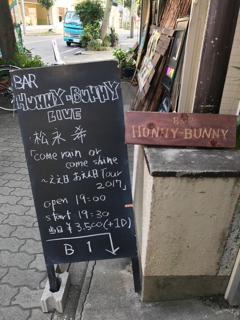 BAR
HUNNY-BUNNY
LIVE
松永希
「come rain or
come shine
～ええ日お天日Tour
2017」
open 19:00
start 19:30
当日¥3,500(+1D)
B1
BAR
HUNNY-BUNNY